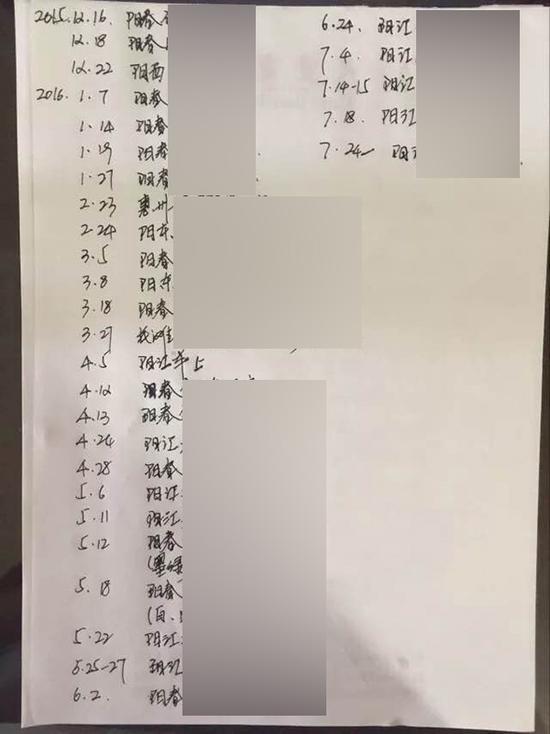 2015.12.16. 阳春
12.18 阳春
12.22 阳西
2016.1.7 阳春
1.14 阳春
1.19 阳春
1.27 阳春
2.23 惠州
2.24 阳东
3.5 阳春
3.8 阳东
3.18 阳春
3.27
4.5 阳江
4.12 阳春
4.13 阳春
4.24 阳江
4.28 阳春
5.6 阳江
5.11 阳江
5.12 阳春
(墨绿
5.18 阳春
(白、
5.22 阳江
5.25-27 阳江
6.2. 阳春
6.24. 阳江
7.4. 阳江
7.14-15 阳江
7.18. 阳江
7.24 阳江